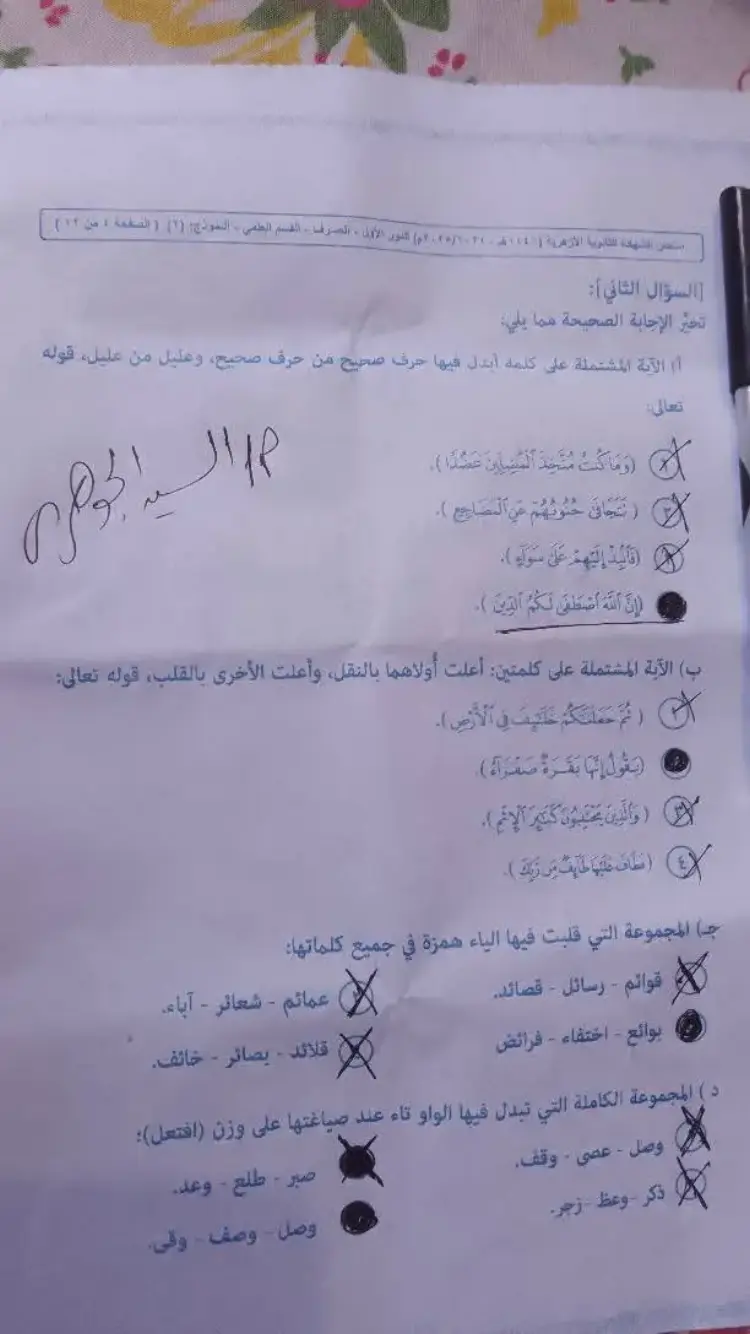 [السؤال الثاني]:
تخيَّر الإجابة الصحيحة مما يلي:
أ) الآية المشتملة على كلمة أبدل فيها حرف صحيح من حرف صحيح، وعليل من عليل، قوله
تعالى:
(وَمَا كُنتُ مُتَّخِذَ ٱلْمُضِلِّينَ عَضُدًا).
(تَتَجَافَىٰ جُنُوبُهُمْ عَنِ ٱلْمَضَاجِعِ).
(فَٱنۢبِذْ إِلَيْهِمْ عَلَىٰ سَوَآءٍ).
(إِنَّ ٱللَّهَ ٱصْطَفَىٰ لَكُمُ ٱلدِّينَ).
م/ السيد الجوهري
ب) الآية المشتملة على كلمتين: أعلت أُولاهما بالنقل، وأعلت الأخرى بالقلب، قوله تعالى:
(ثُمَّ جَعَلْنَٰكُمْ خَلَٰٓئِفَ فِي ٱلْأَرْضِ).
(يَقُولُ إِنَّهَا بَقَرَةٌ صَفْرَآءُ).
(وَٱلَّذِينَ يَجْتَنِبُونَ كَبَٰٓئِرَ ٱلْإِثْمِ).
٤ (فَطَافَ عَلَيْهَا طَآئِفٌ مِّن رَّبِّكَ).
جـ) المجموعة التي قلبت فيها الياء همزة في جميع كلماتها:
قوائم - رسائل - قصائد. عمائم - شعائر - آباء.
بوائع - اختفاء - فرائض قلائد - بصائر - خائف.
د) المجموعة الكاملة التي تبدل فيها الواو تاء عند صياغتها على وزن (افتعل):
وصل - عصى - وقف. صبر - طلع - وعد.
ذكر - وعظ - زجر. وصل - وصف - وقى.